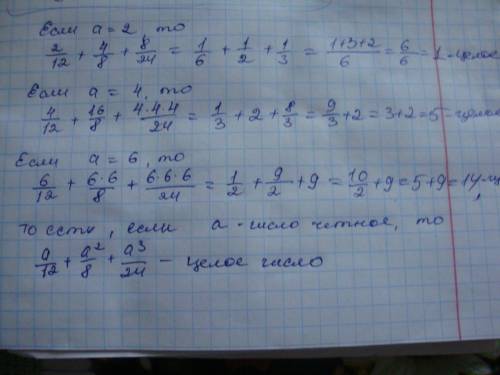 Если a = 2, то
2/12 + 4/8 + 8/24 = 1/6 + 1/2 + 1/3 = (1+3+2)/6 = 6/6 = 1 - целое
Если a = 4, то
4/12 + 16/8 + 4·4·4/24 = 1/3 + 2 + 8/3 = 9/3 + 2 = 3+2 = 5 - целое
Если a = 6, то
6/12 + 6·6/8 + 6·6·6/24 = 1/2 + 9/2 + 9 = 10/2 + 9 = 5+9 = 14
То есть, если a - число четное, то
a/12 + a²/8 + a³/24 - целое число